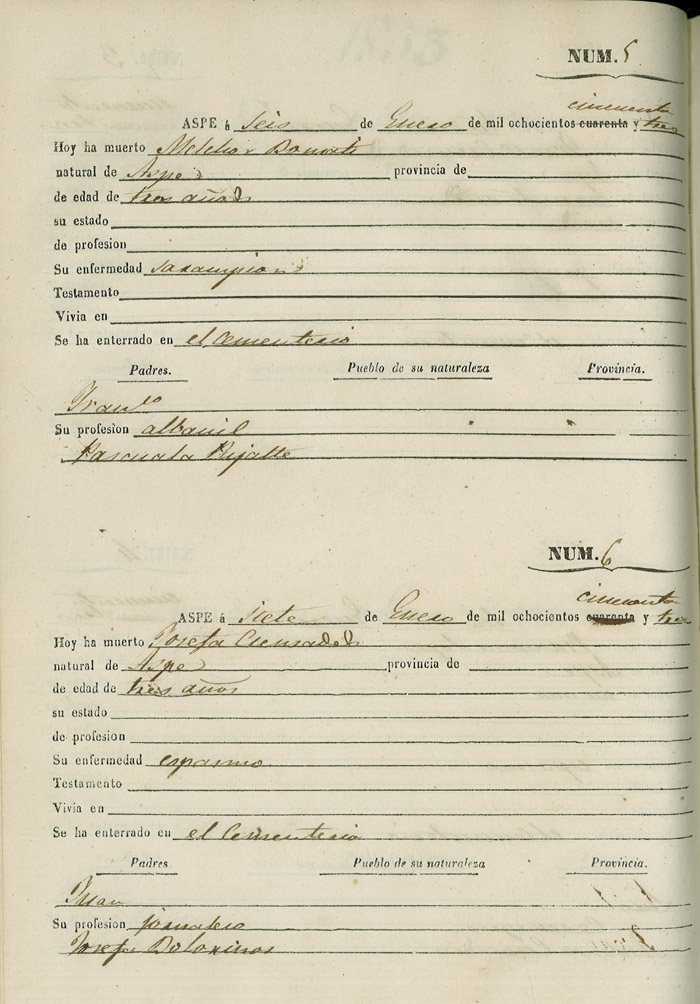 NUM. 5
cincuenta
ASPE á Seis de Enero de mil ochocientos cuarenta y tres
Hoy ha muerto Melchor Bonorte
natural de Aspe provincia de
de edad de tres años
su estado
de profesion
Su enfermedad sarampion
Testamento
Vivia en
Se ha enterrado en el Cementerio
Padres. Pueblo de su naturaleza Provincia.
Franco
Su profesion albanil
Pascuala Pujalte
NUM. 6
cincuenta
ASPE á Siete de Enero de mil ochocientos cuarenta y tres
Hoy ha muerto Josefa
natural de Aspe provincia de
de edad de tres años
su estado
de profesion
Su enfermedad espasmo
Testamento
Vivia en
Se ha enterrado en el Cementerio
Padres Pueblo de su naturaleza Provincia.
Juan
Su profesion jornalero
Josefa Botorinos